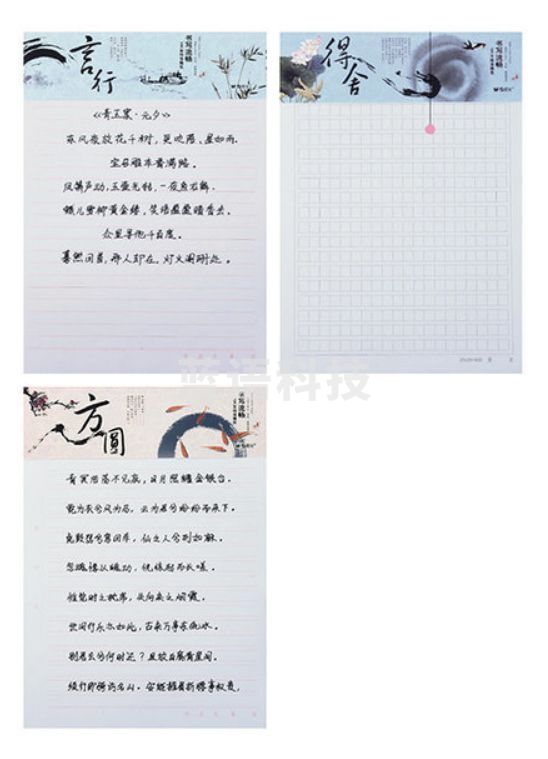 言行
书写流畅
《青玉案·元夕》
东风夜放花千树,更吹落、星如雨.
宝马雕车香满路.
凤箫声动,玉壶光转,一夜鱼龙舞.
蛾儿雪柳黄金缕,笑语盈盈暗香去.
众里寻他千百度.
蓦然回首,那人却在,灯火阑珊处.
得舍
书写流畅
蓝语科技
方圆
书写流畅
青冥浩荡不见底,日月照耀金银台.
霓为衣兮风为马,云之君兮纷纷而来下.
虎鼓瑟兮鸾回车,仙之人兮列如麻.
忽魂悸以魄动,恍惊起而长嗟.
惟觉时之枕席,失向来之烟霞.
世间行乐亦如此,古来万事东流水.
别君去兮何时还?且放白鹿青崖间.
须行即骑访名山.安能摧眉折腰事权贵,